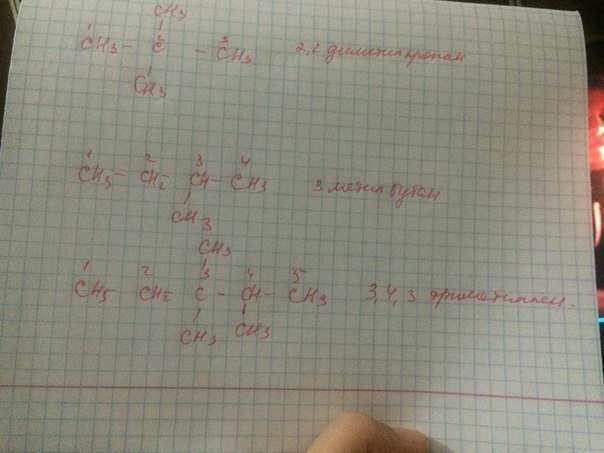 CH3
1 2 3
CH3 - C - CH3 2,2 диметилпропан
CH3
1 2 3 4
CH3 - CH2 CH - CH3 3 метил бутан
CH3
CH3
1 2 3 4 5
CH3 - CH2 C - CH - CH3 3,4,3
CH3 CH3